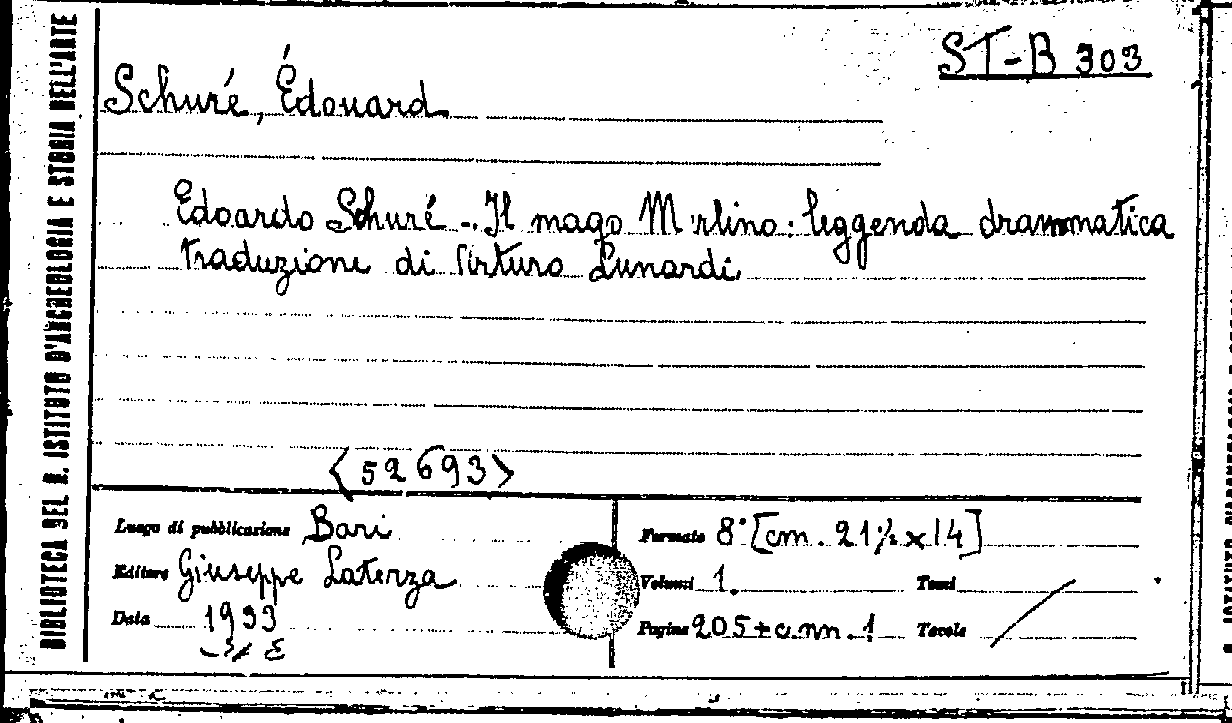 BIBLIOTECA DEL R. ISTITUTO D'ARCHEOLOGIA E STORIA DELL'ARTE
ST-B 303
Schuré, Édouard
Edoardo Schuré -. Il mago Merlino: leggenda drammatica
traduzione di Arturo Lunardi
<52693>
Luogo di pubblicazione Bari
Editore Giuseppe Laterza
Data 1933
Formato 8° [cm. 21½ x 14]
Volumi 1. Tomi
Pagine 205 + c. nn. 1 Tavole /